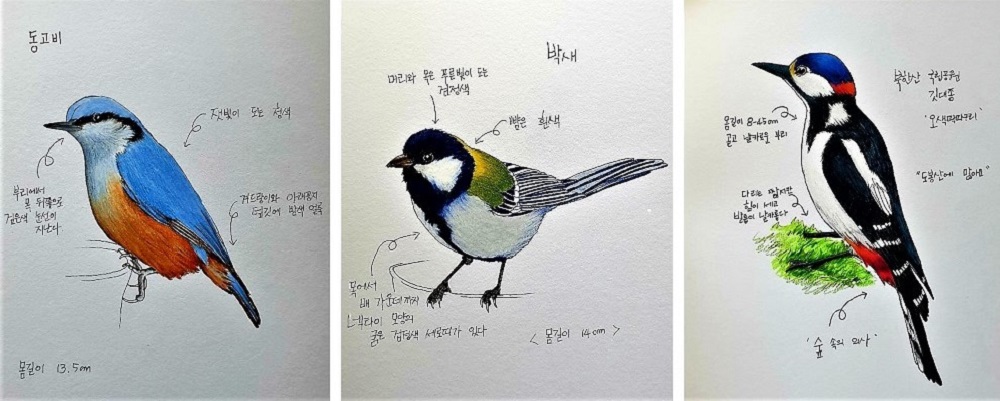 동고비
잿빛이 도는 청색
부리에서
목 뒤쪽으로
검은색 눈선이
지난다
겨드랑이와 아래꽁지
덮깃에 밤색 얼룩
몸길이 13.5cm
박새
머리와 목은 푸른빛이 도는
검정색
뺨은 흰색
목에서
배 가운데까지
넥타이 모양의
굵은 검정색 세로띠가 있다
< 몸길이 14cm >
북한산 국립공원
깃대종
'오색딱따구리'
"도봉산에 많아요"
몸길이
곧고 날카로운 부리
다리는 짧지만
힘이 세고
발톱이 날카롭다
'숲 속의 의사'